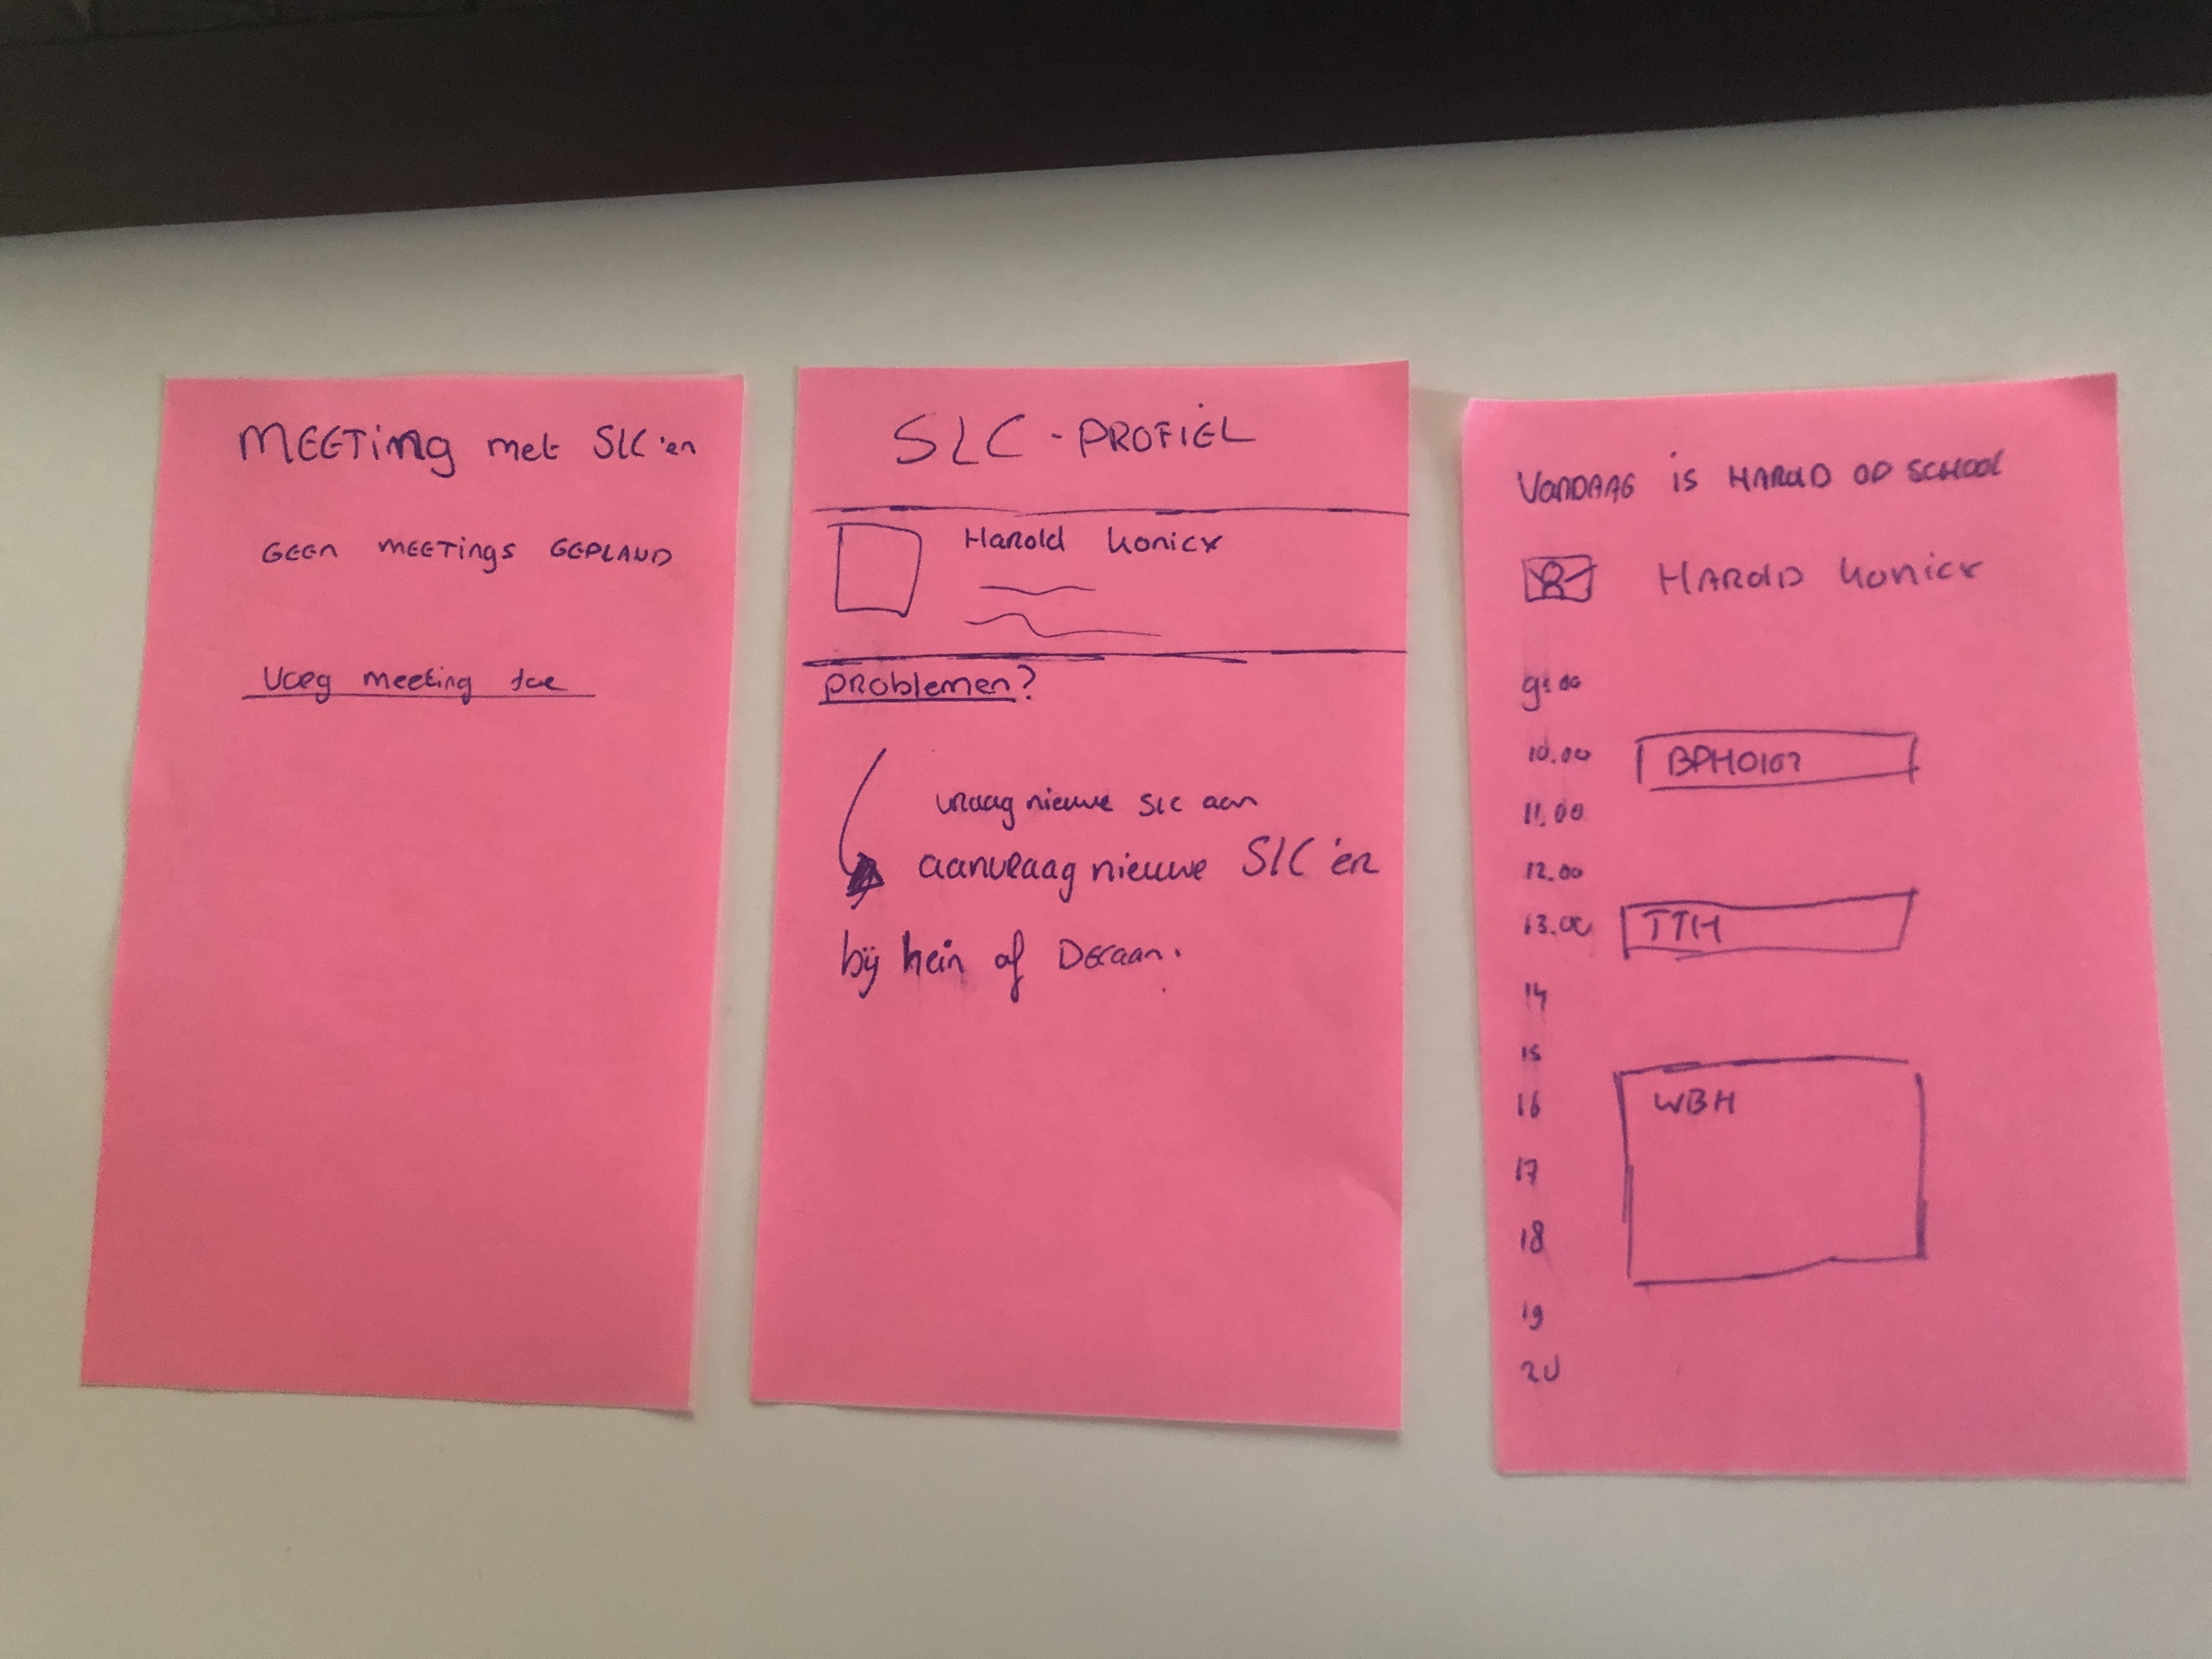 MEETing met SLC'en
GEEN MEETINGS GEPLAND
Voeg meeting toe
SLC - PROFIEL
Harold Konicx
PROBlemen?
vraag nieuwe SLC aan
aanvraag nieuwe SLC'er
bij hein of Decaan.
VANDAAG is HAROLD OP SCHOOL
HAROLD Konicx
9:00
10.00 BPH0107
11.00
12.00
13.00 TTH
14
15
16 WBH
17
18
19
20